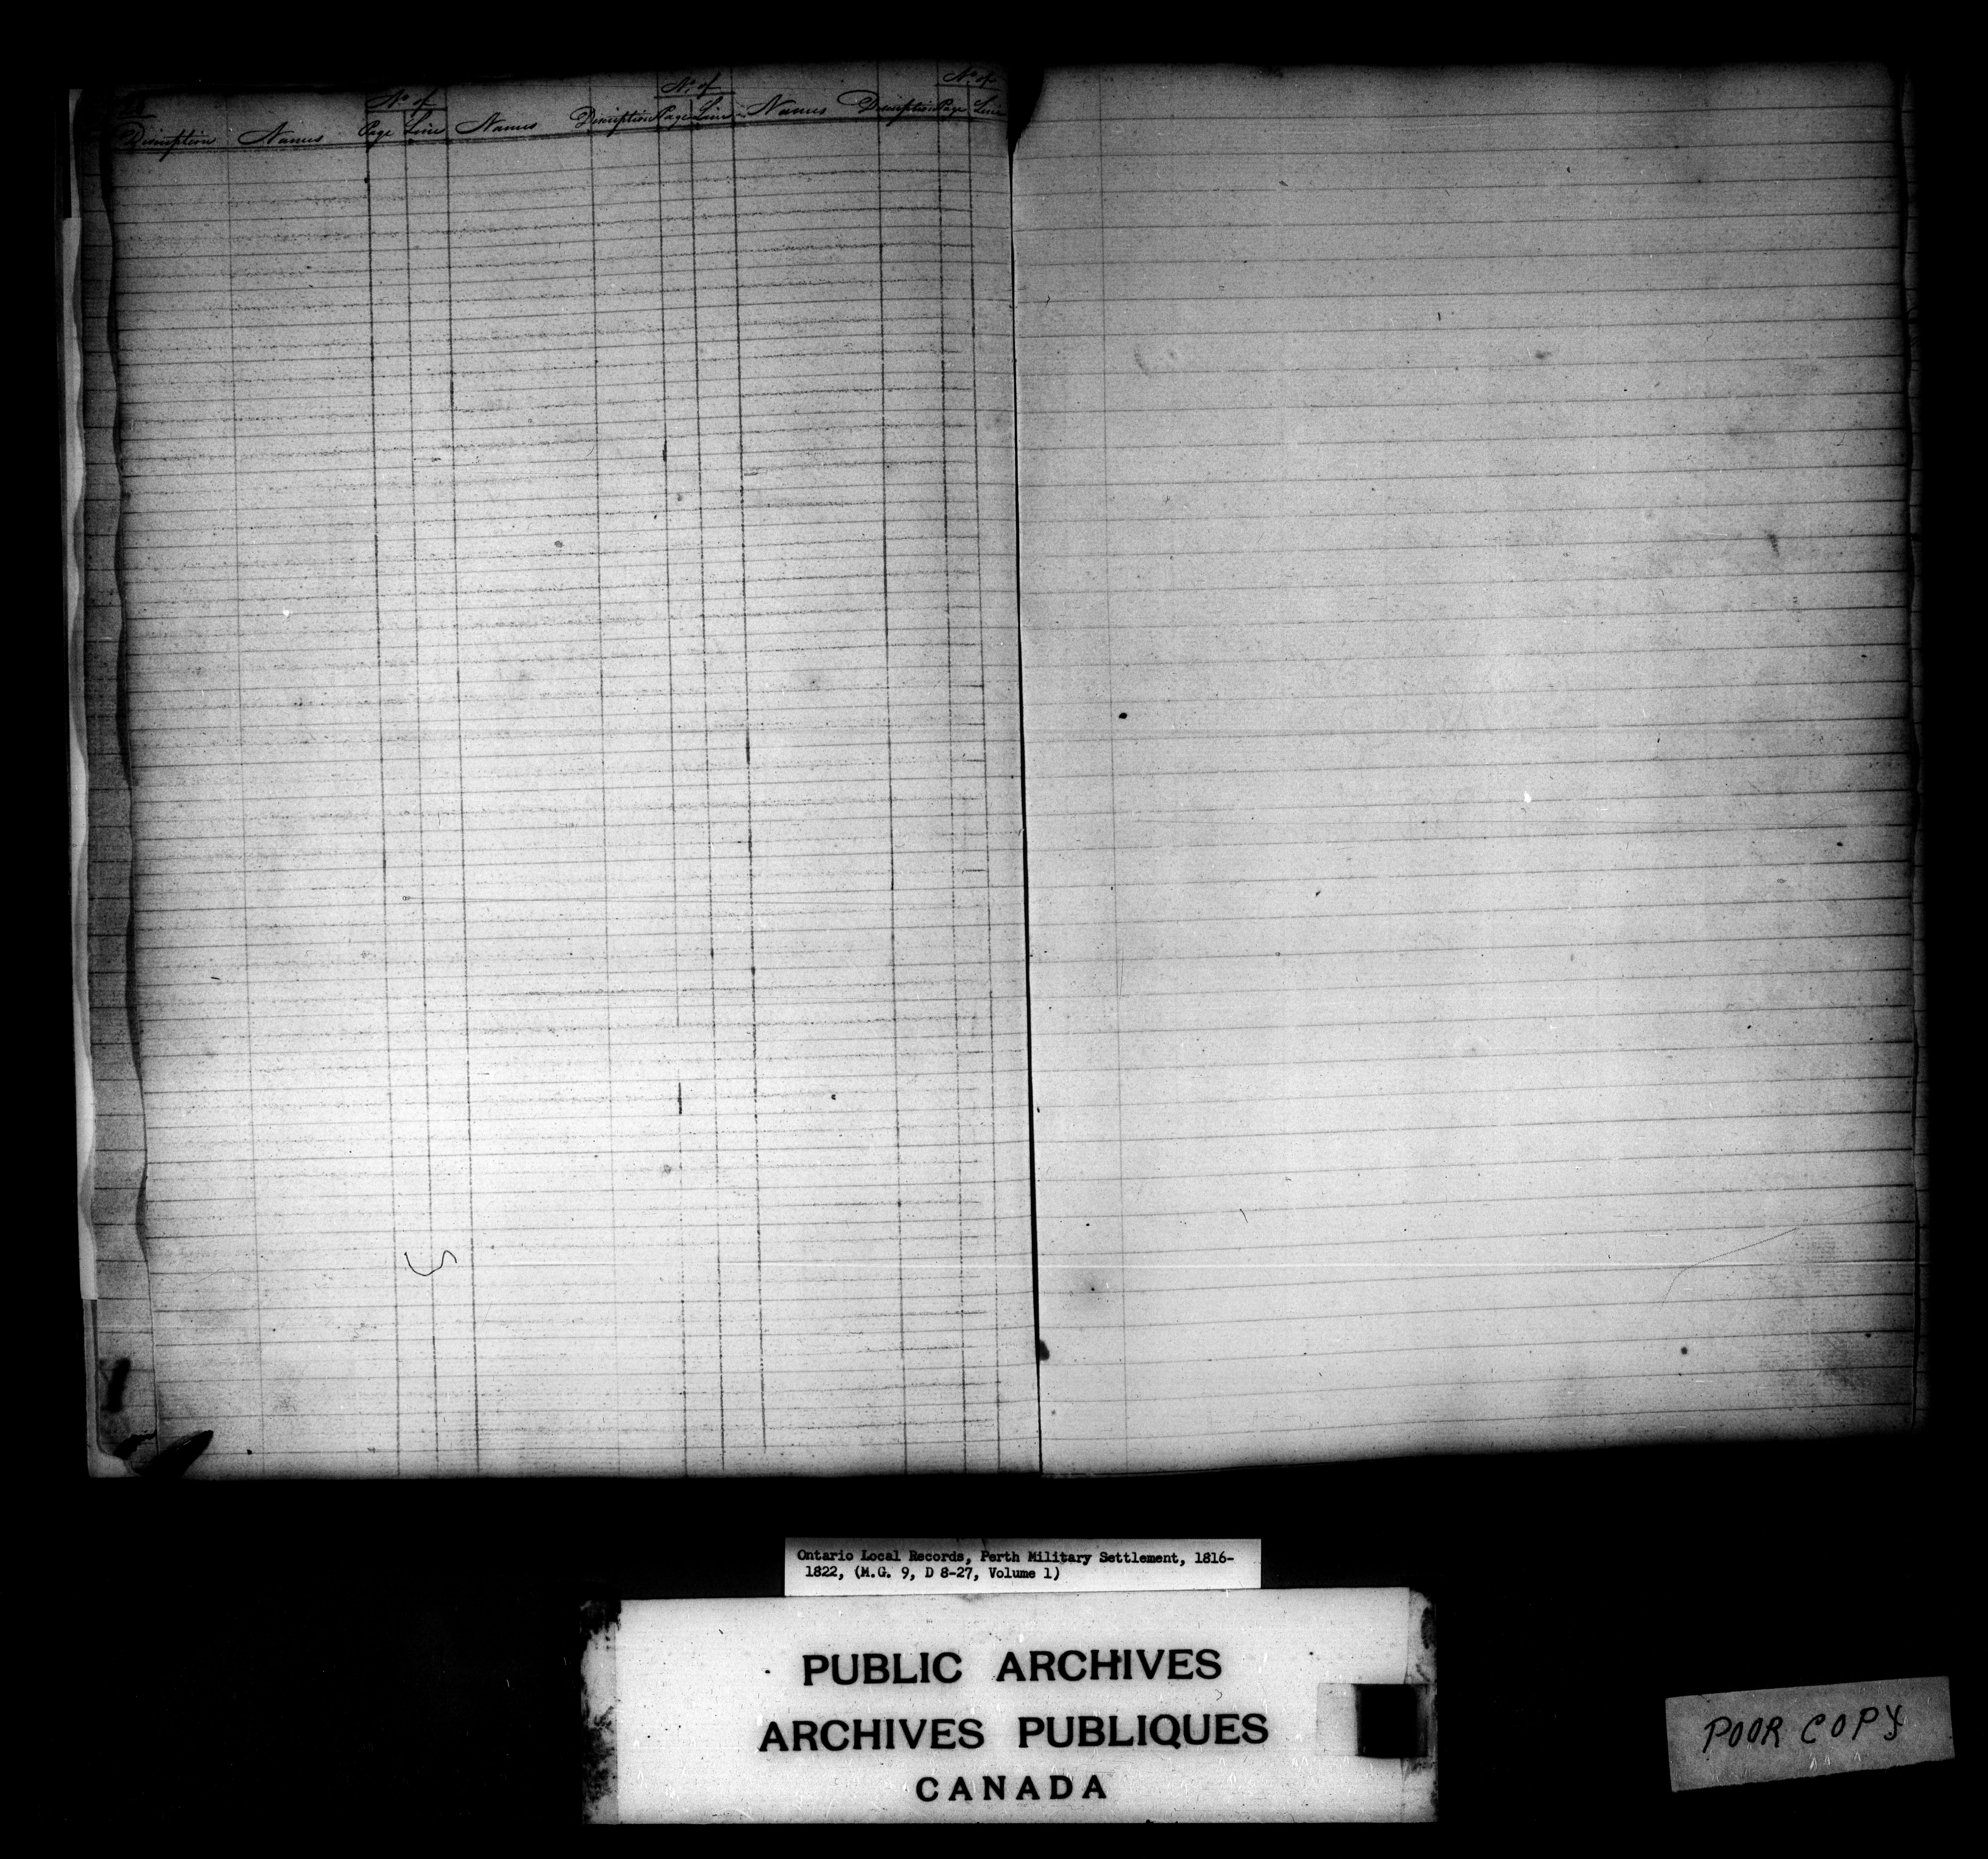 No of No of No of
Description Names Page Line Names Description Page Line Names Description Page Line
Ontario Local Records, Perth Military Settlement, 1816-
1822, (M.G. 9, D 8-27, Volume 1)
PUBLIC ARCHIVES
ARCHIVES PUBLIQUES
CANADA
POOR COPY